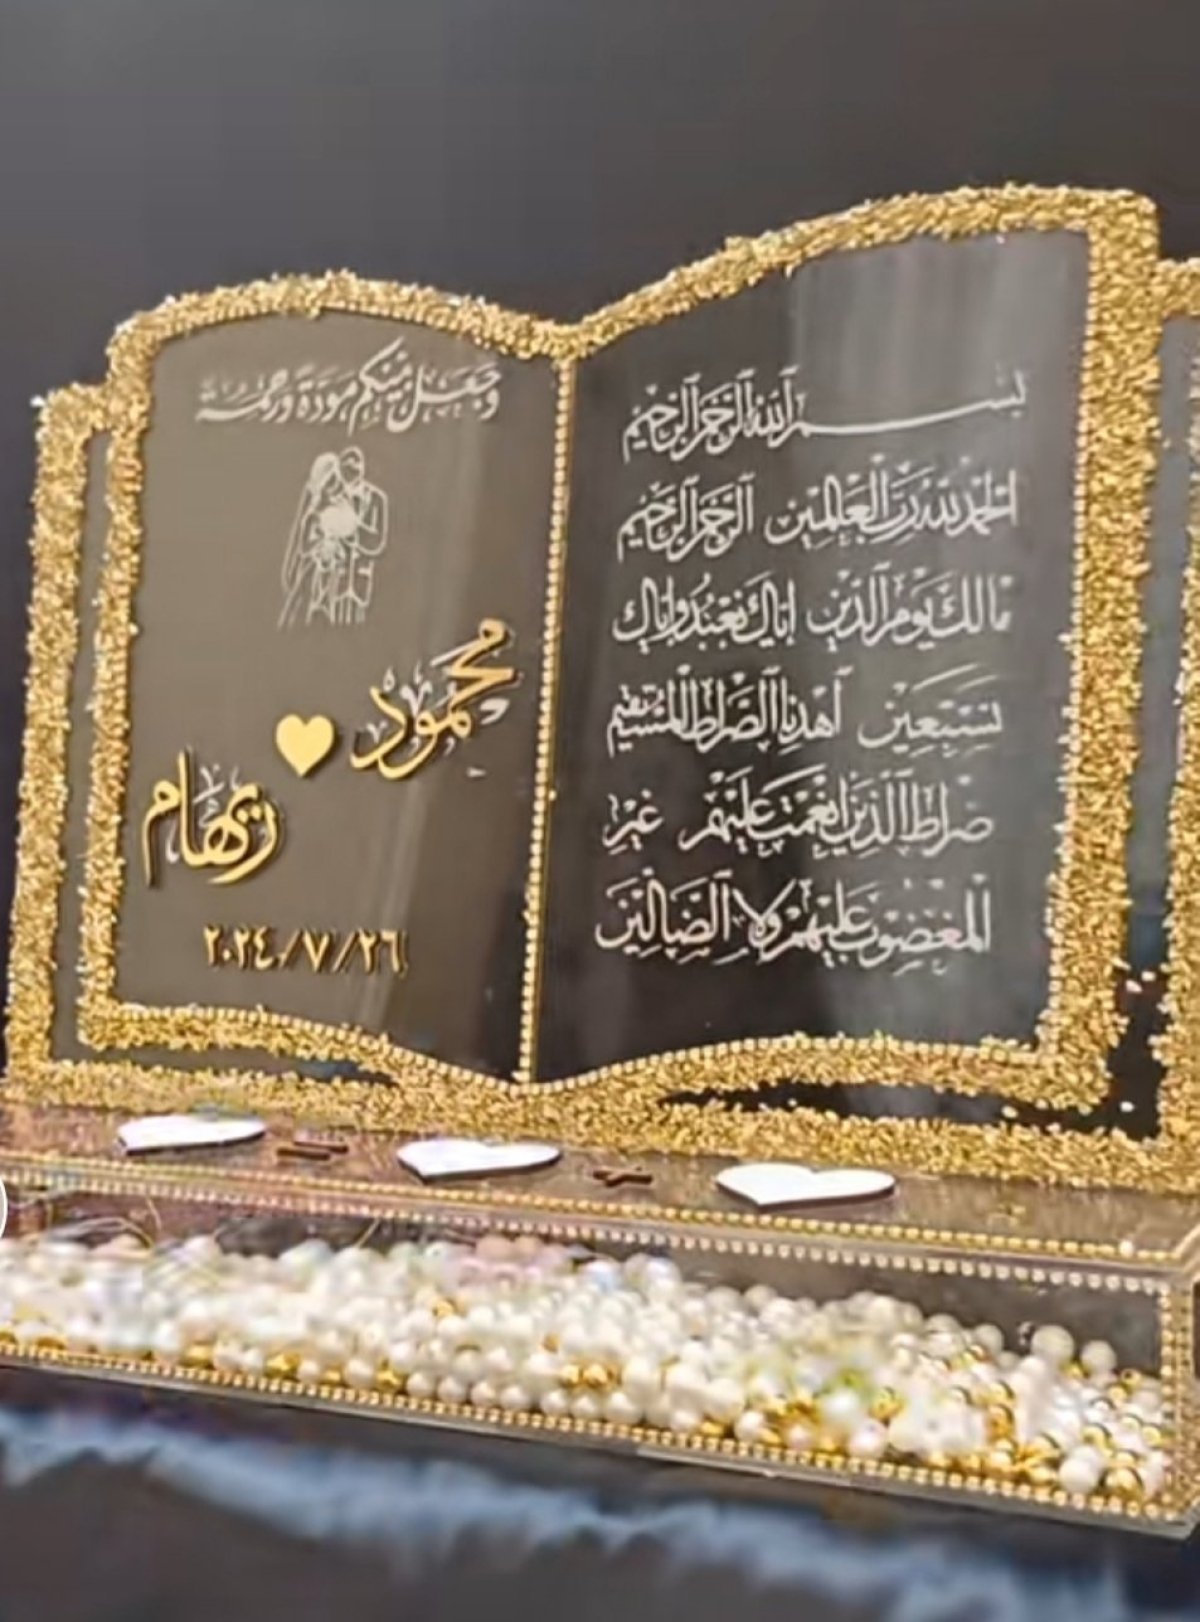 بسم الله الرحمن الرحيم
الحمد لله رب العالمين الرحمن الرحيم
مالك يوم الدين إياك نعبد وإياك
نستعين اهدنا الصراط المستقيم
صراط الذين أنعمت عليهم غير
المغضوب عليهم ولا الضالين
وجعل منكم مودة ورحمة
محمود
ريهام
٢٠٢٤/٧/٢٦